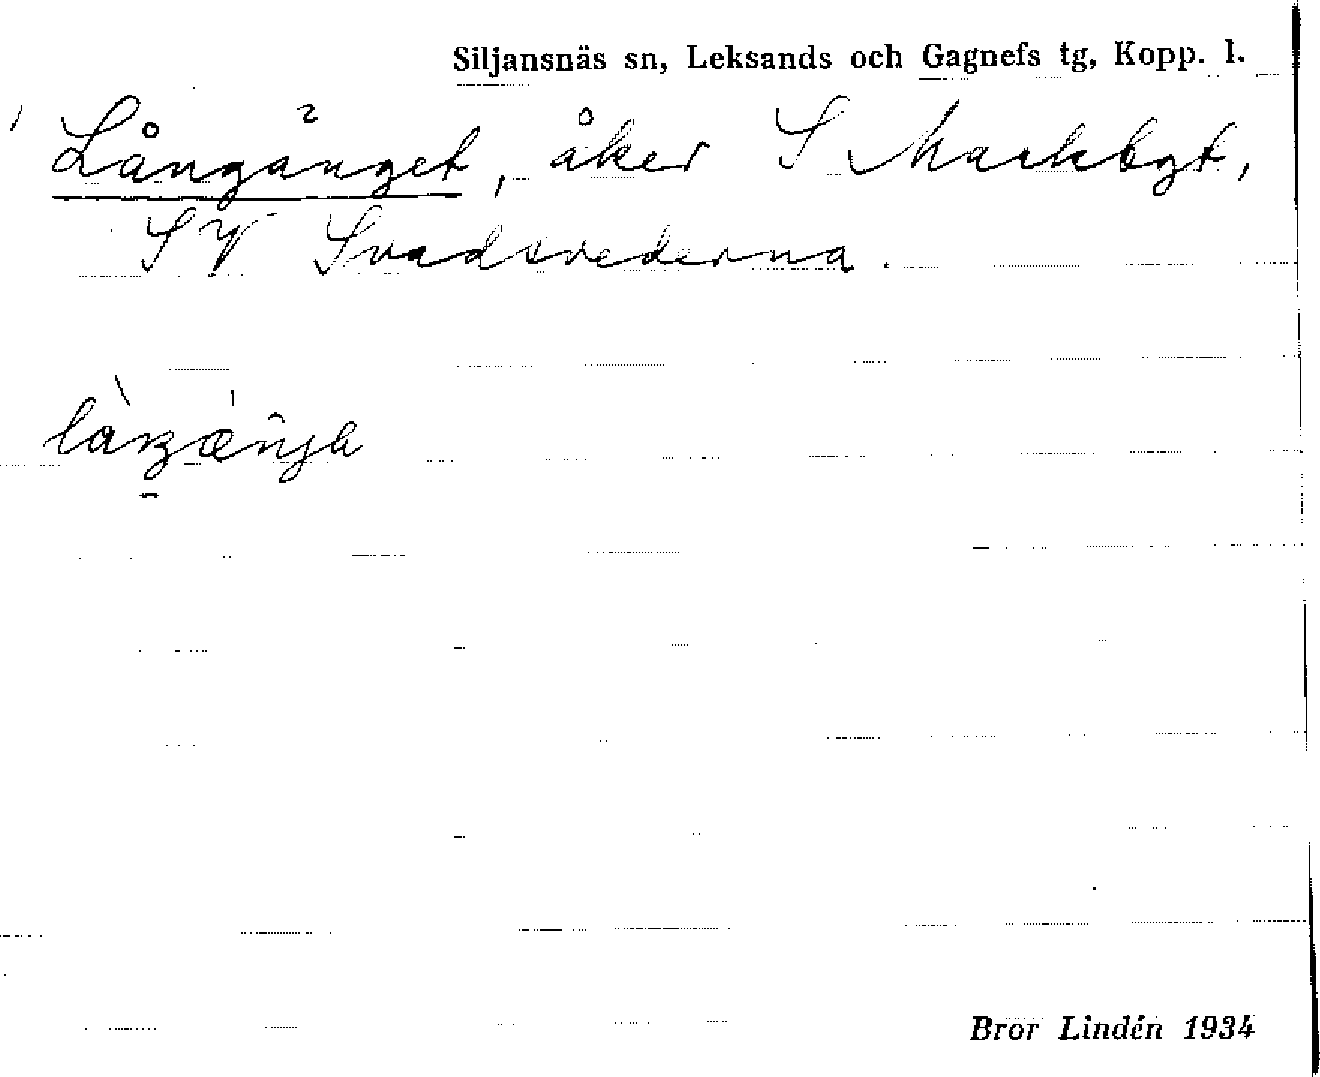 Siljansnäs sn, Leksands och Gagnefs tg, Kopp. l.
Långänget, åker S Markbyt,
SV Svadsvederna.
Bror Lindén 1934